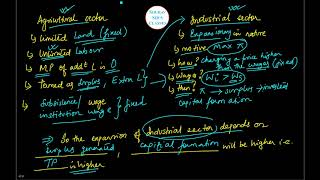 Agricultural sector
↳ Limited Land (fixed)
↳ Unlimited Labour
↳ MP of addl L is 0
↳ Termed as surplus, Extra L
↳ Subsistence/ wage
institution wage } fixed
SOURAV
SIR'S
CLASSES
Industrial sector
↳ Expansionary in nature
↳ motive Max π
↳ how? charging a price higher
than the wages (fixed)
↳ wage
↳ then? π → surplus → invested
capital formation
⇒ So the expansion of Industrial sector depends on
surplus generated, capital formation will be higher i.e.
TP is higher